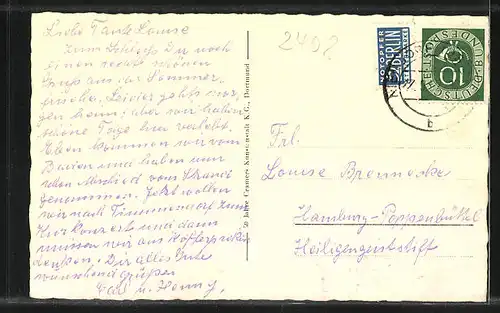 Liebe Tante Louise
Zum Schluss Dir noch
einen recht schönen
Gruß aus der Sommer-
frische. Leider geht's mor-
gen heim, aber wir haben
schöne Tage hier verlebt.
Eben kommen wir vom
Baden und haben nun
schon Abschied vom Strand
genommen. Jetzt wollen
wir nach Timmendorf zum
Kurkonzert und dann
müssen wir ans Kofferpacken
denken. Dir alles Gute
wünschend grüßen
u. Henny.
50 Jahre Cramers Kunstanstalt K.G., Dortmund
2402
NOTOPFER
2 BERLIN
STEUERMARKE
DEUTSCHE BUNDESPOST
10
b
Frl.
Louise Brennecke
Hamburg-Poppenbüttel
Heiligengeiststift